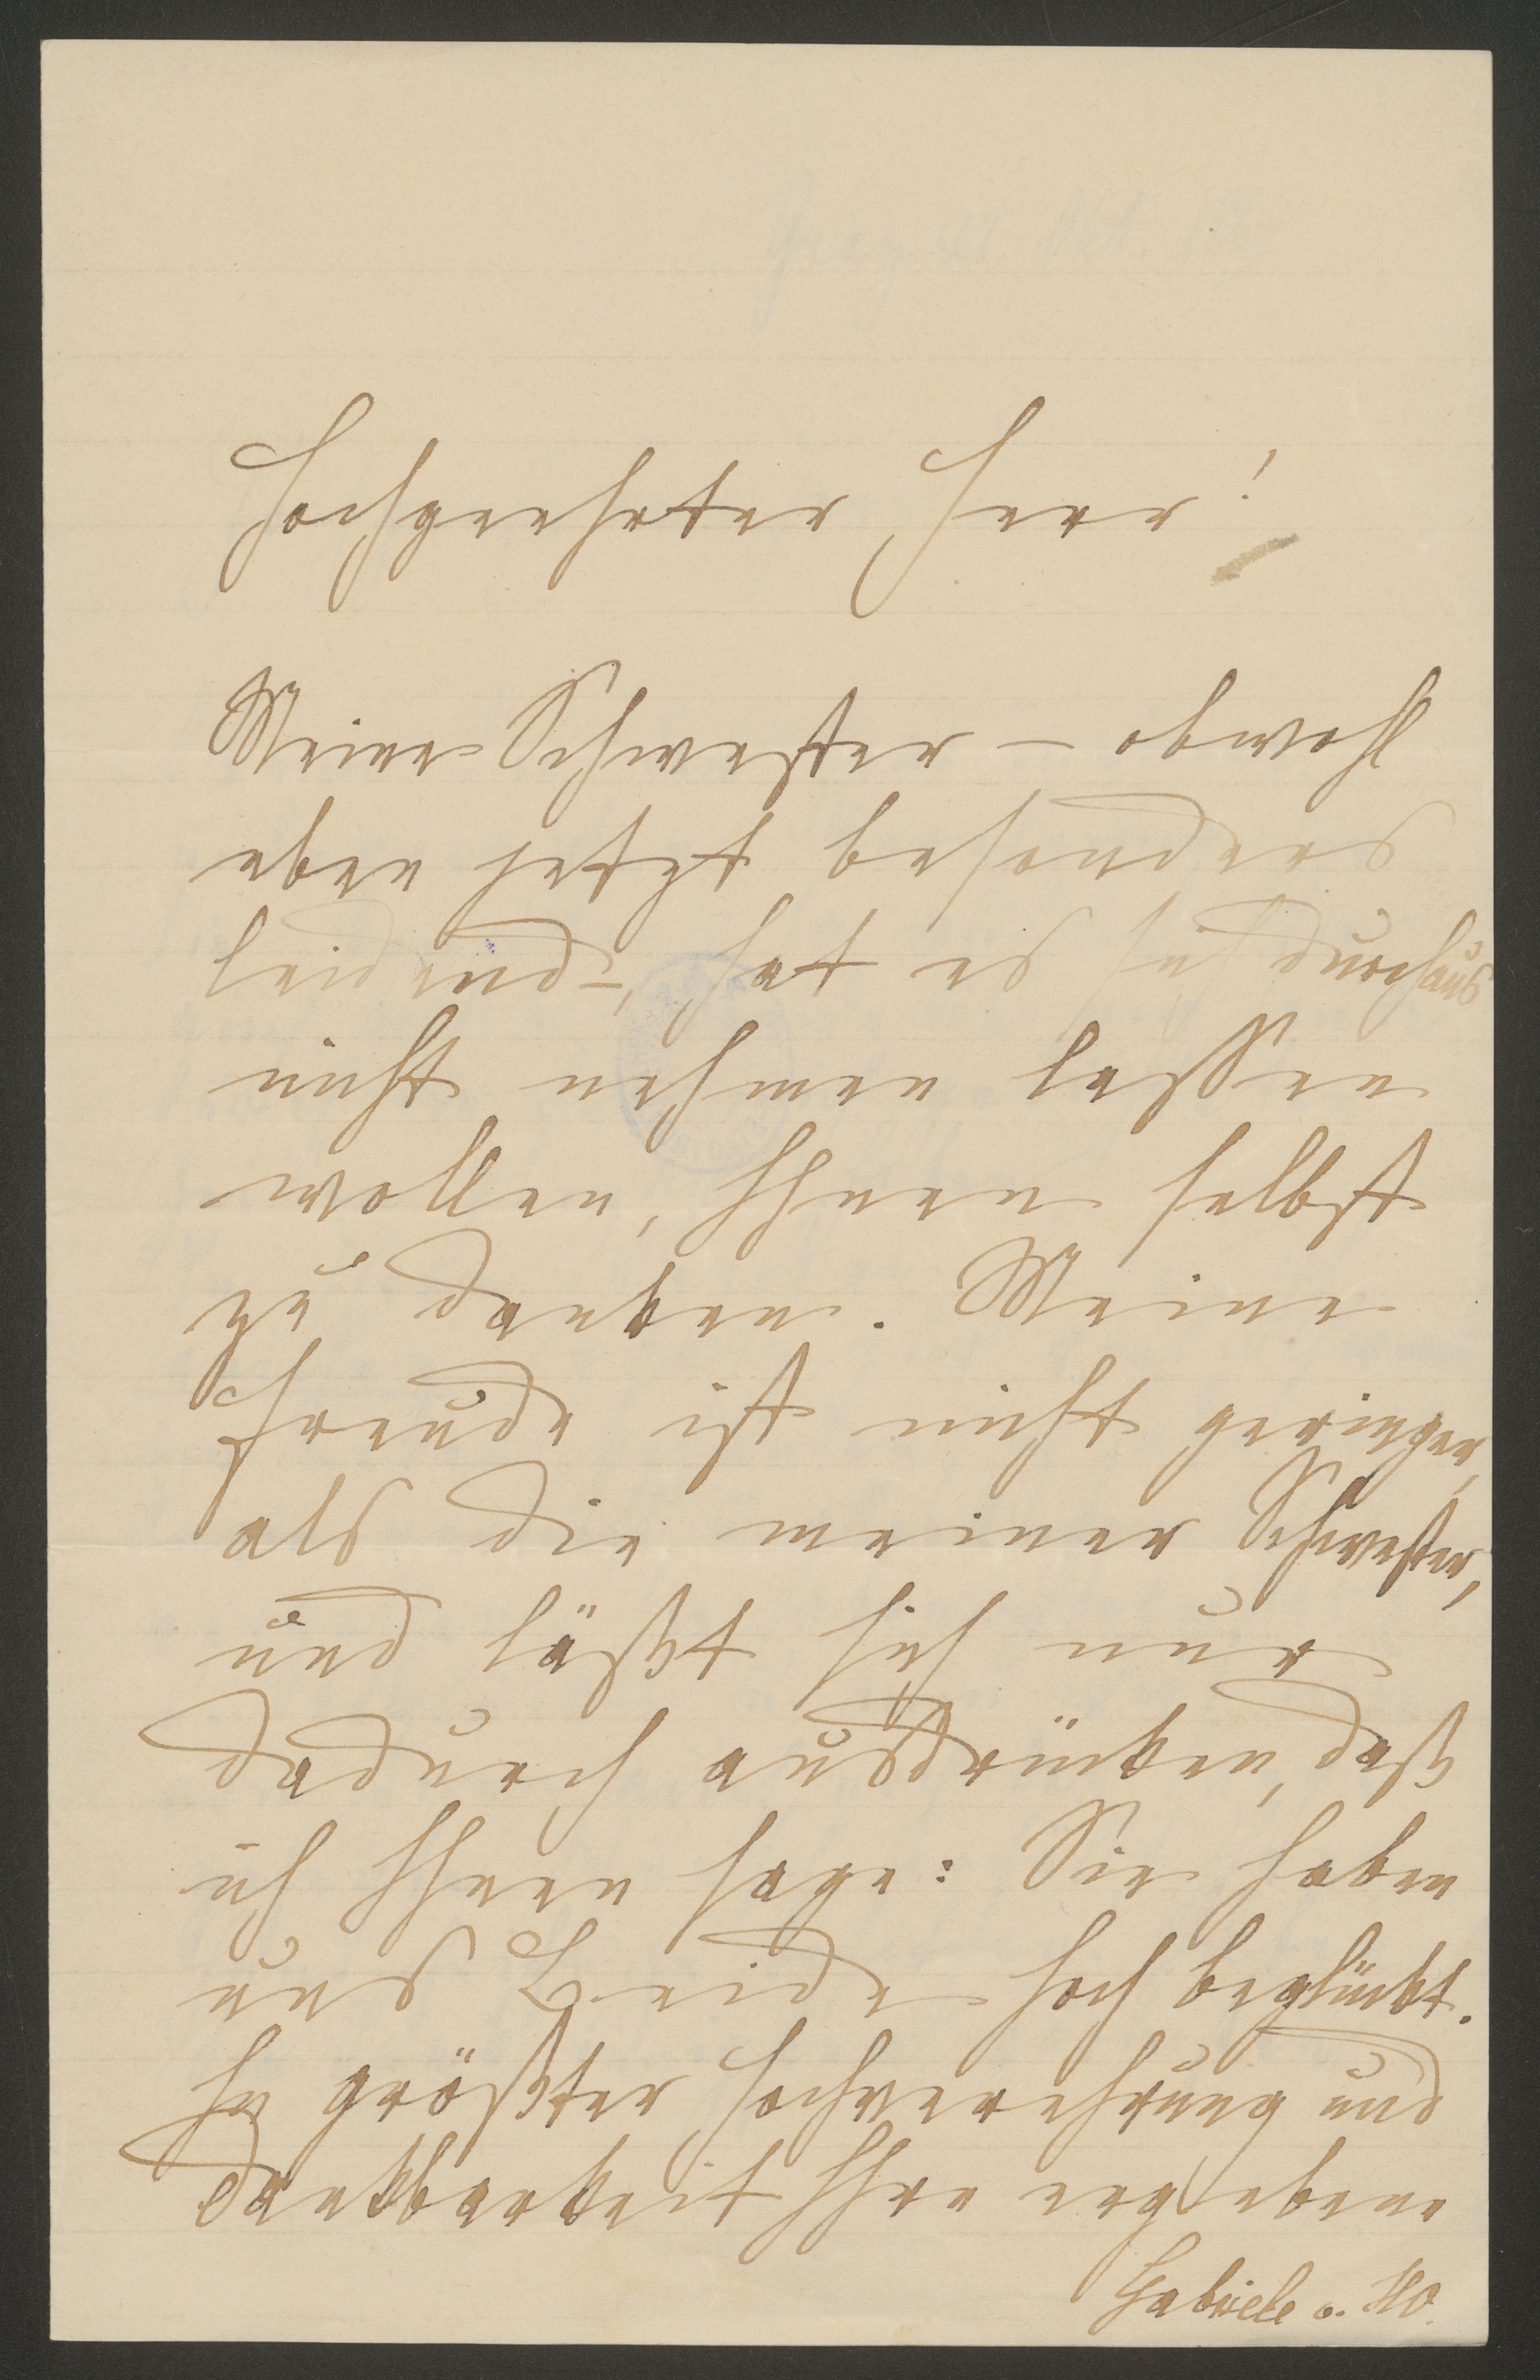 Hochgeehrter Herr!
Meine Schwester – obwohl
eben jetzt besonders
leidend –, hat es sich durchaus
nicht nehmen lassen
wollen, Ihnen selbst
zu danken. Meine
Freude ist nicht geringer,
als die meiner Schwester,
und läßt sich nur
dadurch ausdrücken, daß
ich Ihnen sage: Sie haben
uns Beide hoch beglückt.
In größter Hochverehrung und
Dankbarkeit Ihre ergebene
Gabriele v.